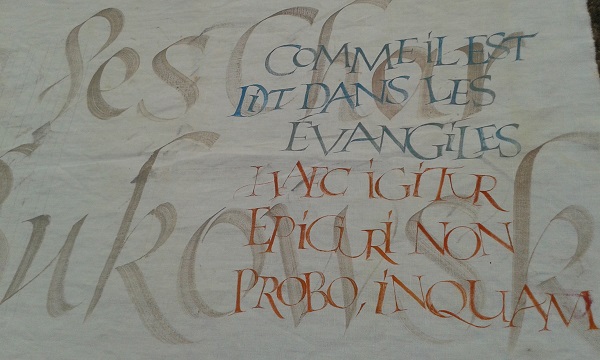 COMME IL EST
DIT DANS LES
ÉVANGILES
HAEC IGITUR
EPICURI NON
PROBO, INQUAM
Les Chor
Bukowsk